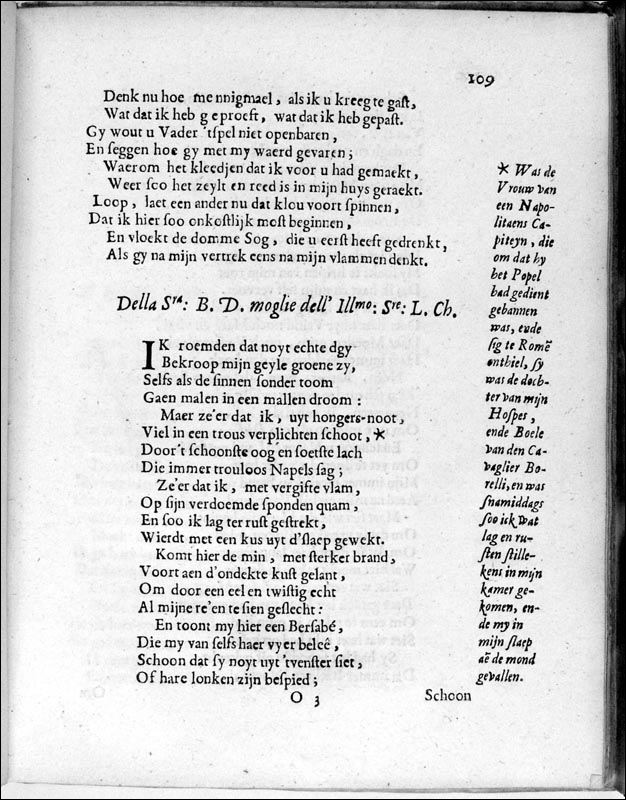 109
Denk nu hoe mennigmael, als ik u kreeg te gast,
Wat dat ik heb geproeft, wat dat ik heb gepast.
Gy wout u Vader 'tspel niet openbaren,
En seggen hoe gy met my waerd gevaren;
Waerom het kleedjen dat ik voor u had gemaekt,
Weer soo het zeylt en reed is in mijn huys geraekt.
Loop, laet een ander nu dat klou voort spinnen,
Dat ik hier soo onkostlijk most beginnen,
En vloekt de domme Sog, die u eerst heeft gedrenkt,
Als gy na mijn vertrek eens na mijn vlammen denkt.
Della Sra: B. D. moglie dell' Illmo: Sre: L. Ch.
IK roemden dat noyt echte dgy
Bekroop mijn geyle groene zy,
Selfs als de sinnen sonder toom
Gaen malen in een mallen droom:
Maer ze'er dat ik, uyt hongers-noot,
Viel in een trous verplichten schoot, *
Door't schoonste oog en soetste lach
Die immer trouloos Napels sag;
Ze'er dat ik, met vergifte vlam,
Op sijn verdoemde sponden quam,
En soo ik lag ter rust gestrekt,
Wierdt met een kus uyt d'slaep gewekt.
Komt hier de min, met sterker brand,
Voort aen d'ondekte kust gelant,
Om door een eel en twistig echt
Al mijne re'en te sien geslecht:
En toont my hier een Bersabé,
Die my van selfs haer vyer belcê,
Schoon dat sy noyt uyt 'tvenster siet,
Of hare lonken zijn bespied;
* Was de
Vrouw van
een Napo-
litaens Ca-
piteyn, die
om dat hy
het Popel
had gedient
gebannen
was, ende
sig te Romē
onthiel, sy
was de doch-
ter van mijn
Hospes,
ende Boele
van den Ca-
vaglier Bo-
relli, en was
snamiddags
soo ick wat
lag en ru-
sten stille-
kens in mijn
kamer ge-
komen, en-
de my in
mijn slaep
aē de mond
gevallen.
O 3
Schoon